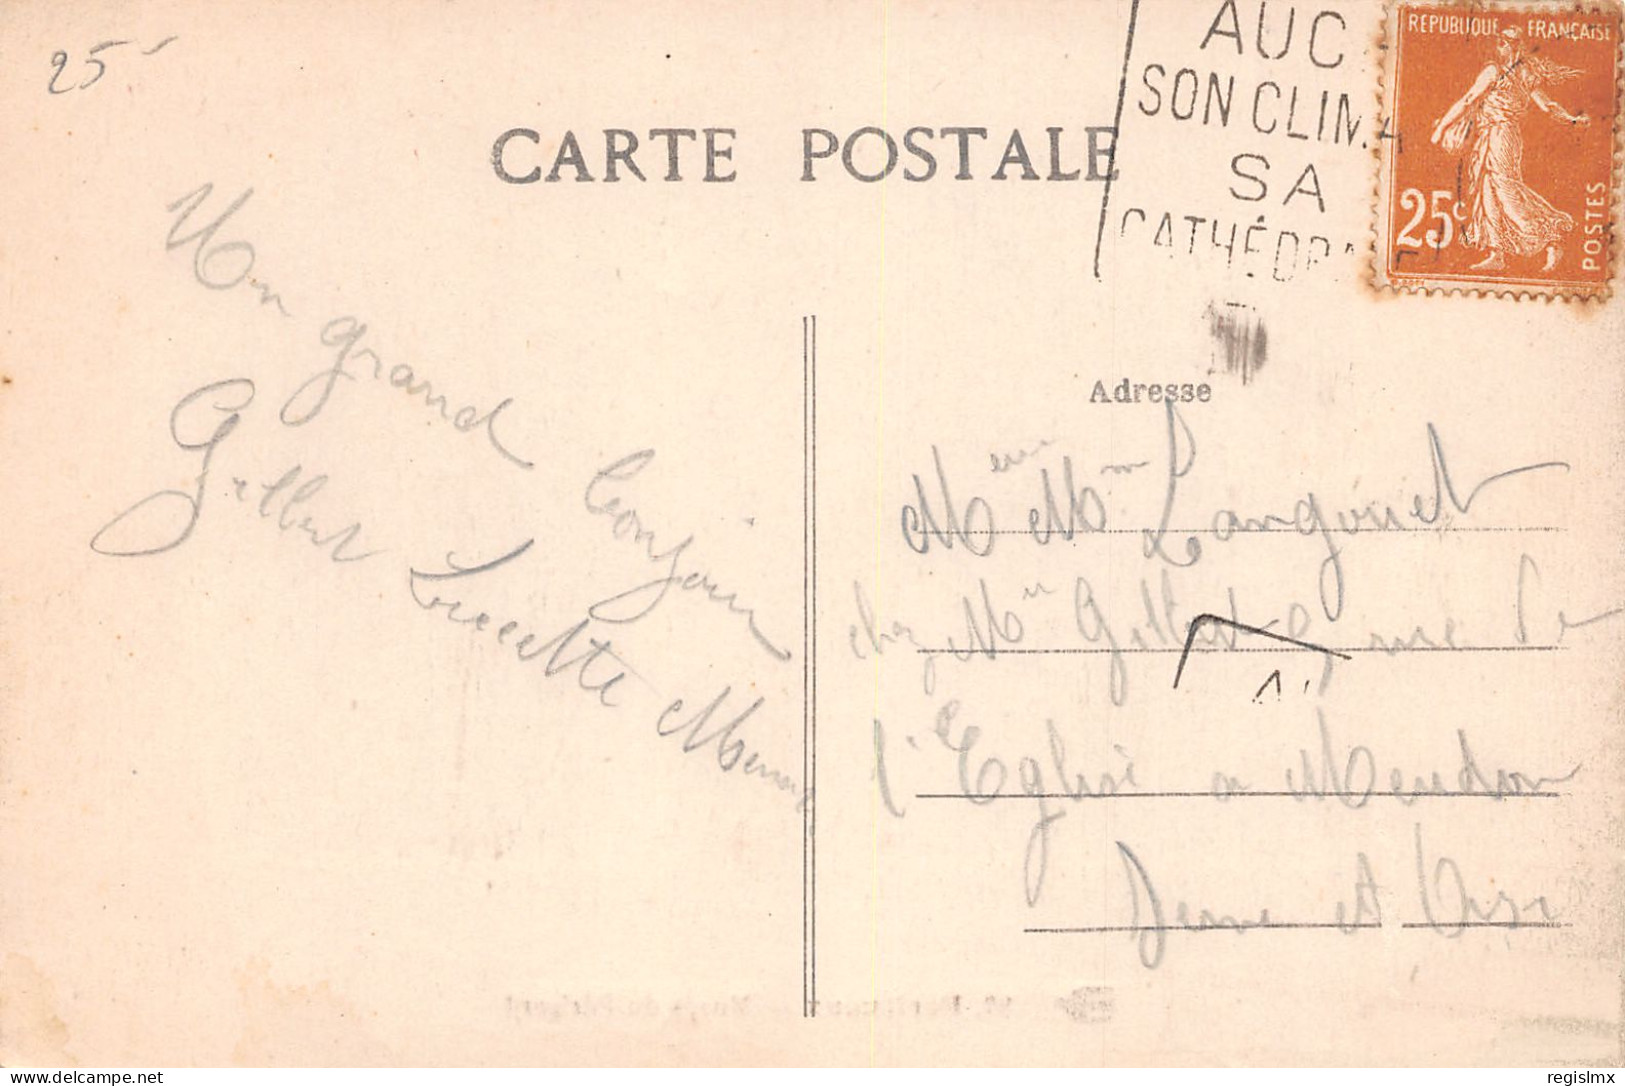 25
CARTE POSTALE
AUC
SON CLIMA
SA
CATHÉDRALE
REPUBLIQUE FRANÇAISE
25c
POSTES
Un grand bonjour
Gilbert Lucette
Adresse
Mme Langouet
chez Mr Gilbert 9 rue de
l'Eglise a Meudon
Seine et Oise
Delcampe.net
regislmx